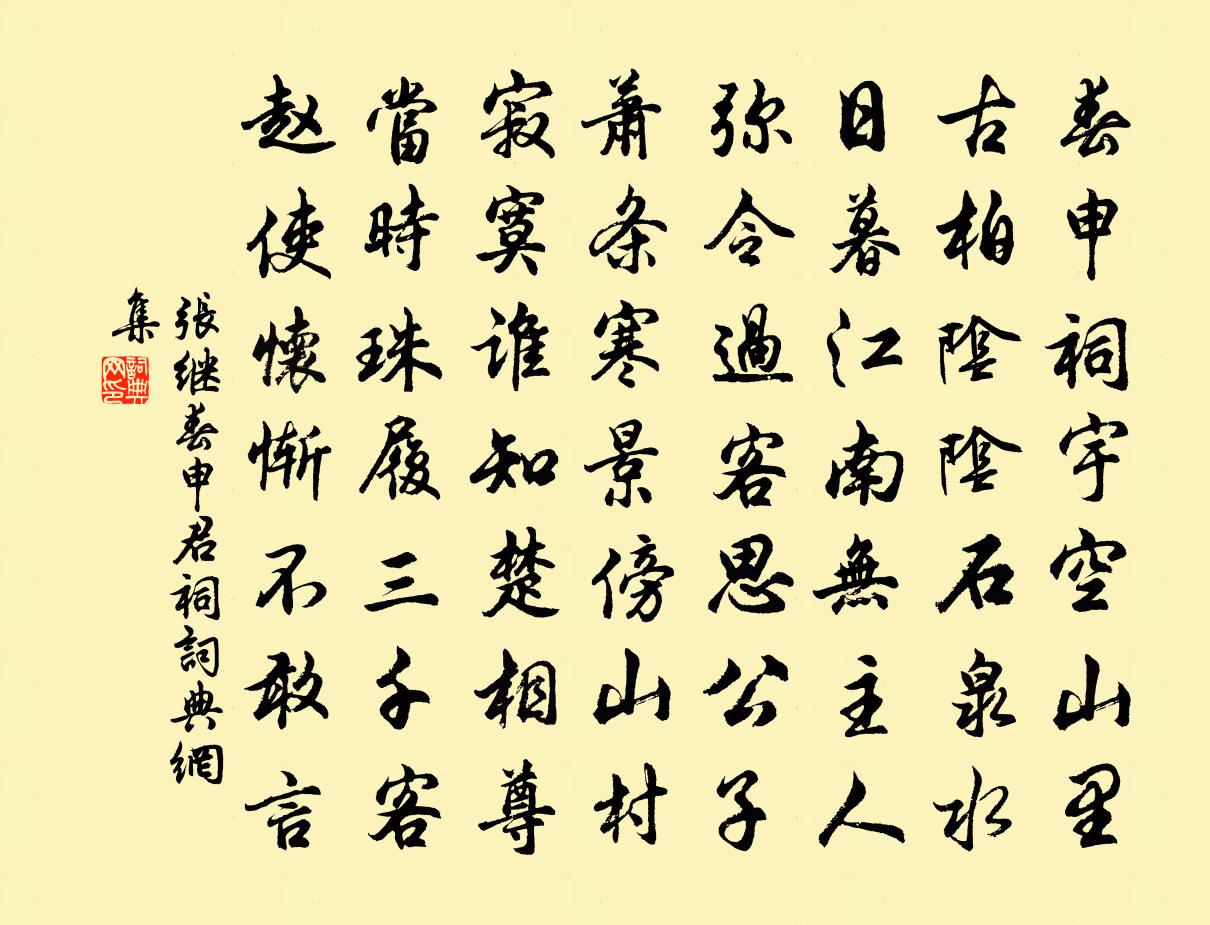 春申祠宇空山里
古柏陰陰石泉水
日暮江南無主人
弥令過客思公子
萧条寒景傍山村
寂寞谁知楚相尊
當時珠履三千客
赵使懷惭不敢言
張继春申君祠詞典網
集
詞典
网印